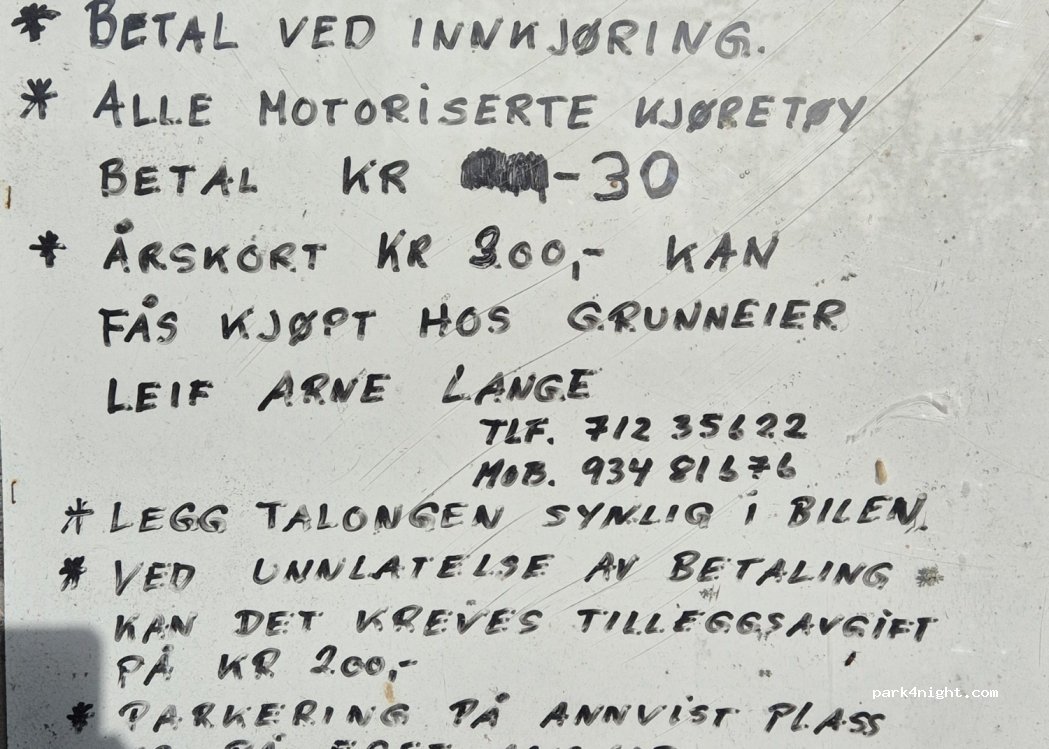 * BETAL VED INNKJØRING.
* ALLE MOTORISERTE KJØRETØY
BETAL KR -30
* ÅRSKORT KR 300,- KAN
FÅS KJØPT HOS GRUNNEIER
LEIF ARNE LANGE
TLF. 712 35622
MOB. 934 81676
* LEGG TALONGEN SYNLIG i BILEN.
* VED UNNLATELSE AV BETALING *
KAN DET KREVES TILLEGGSAVGIFT
PÅ KR 200,-
park4night.com
* PARKERING PÅ ANNVIST PLASS